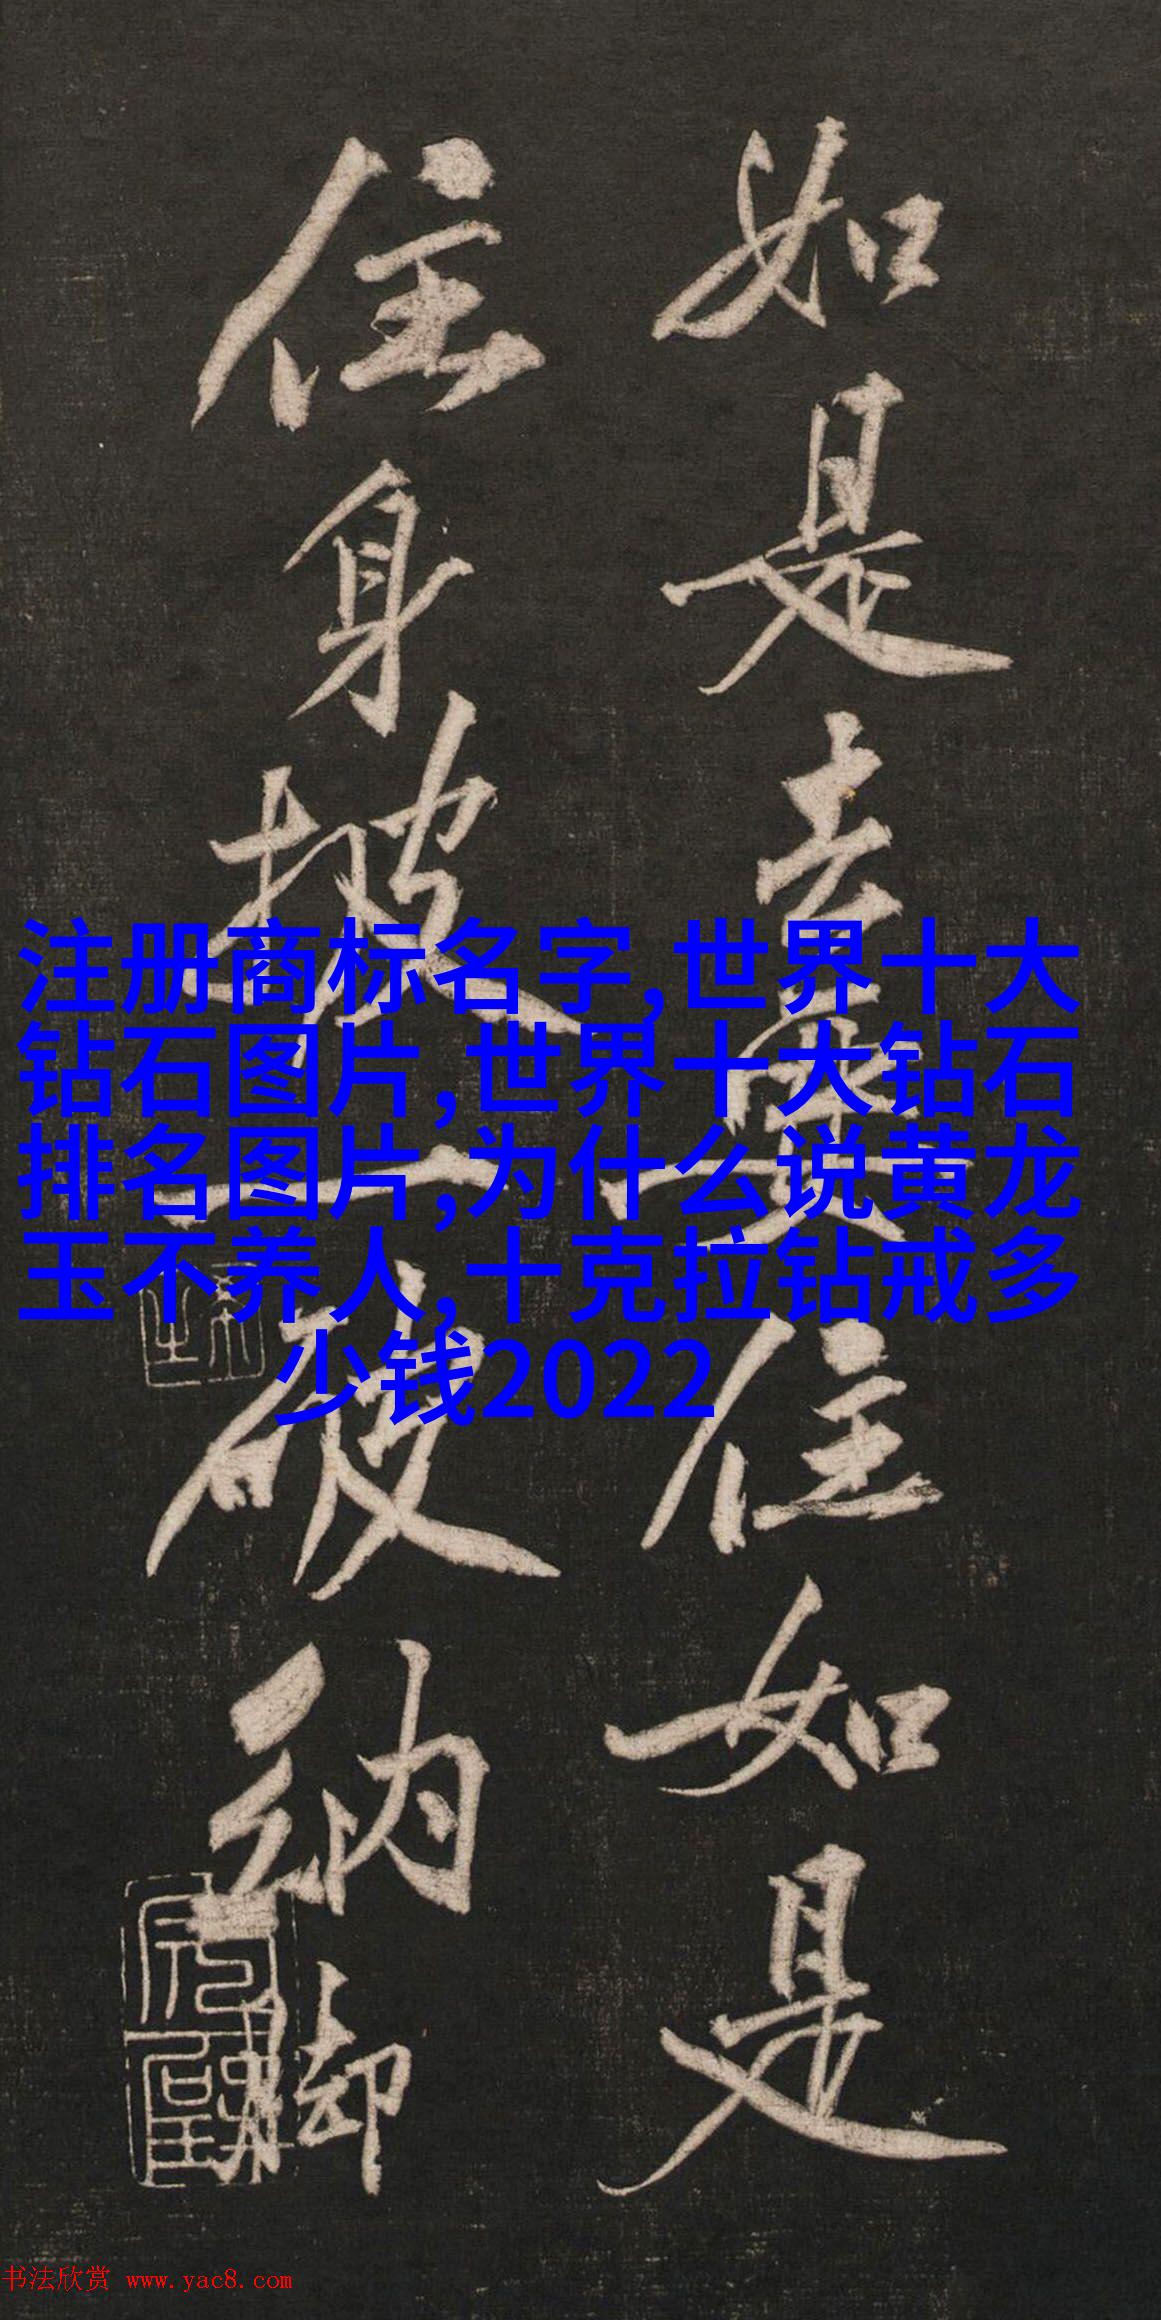 如是去来实住如是
住身披一破纳脚
注册商标名字,世界十大
钻石图片,世界十大钻石
排名图片,为什么说黄龙
玉不养人,十克拉钻戒多
少钱2022
书法欣赏 www.yac8.com